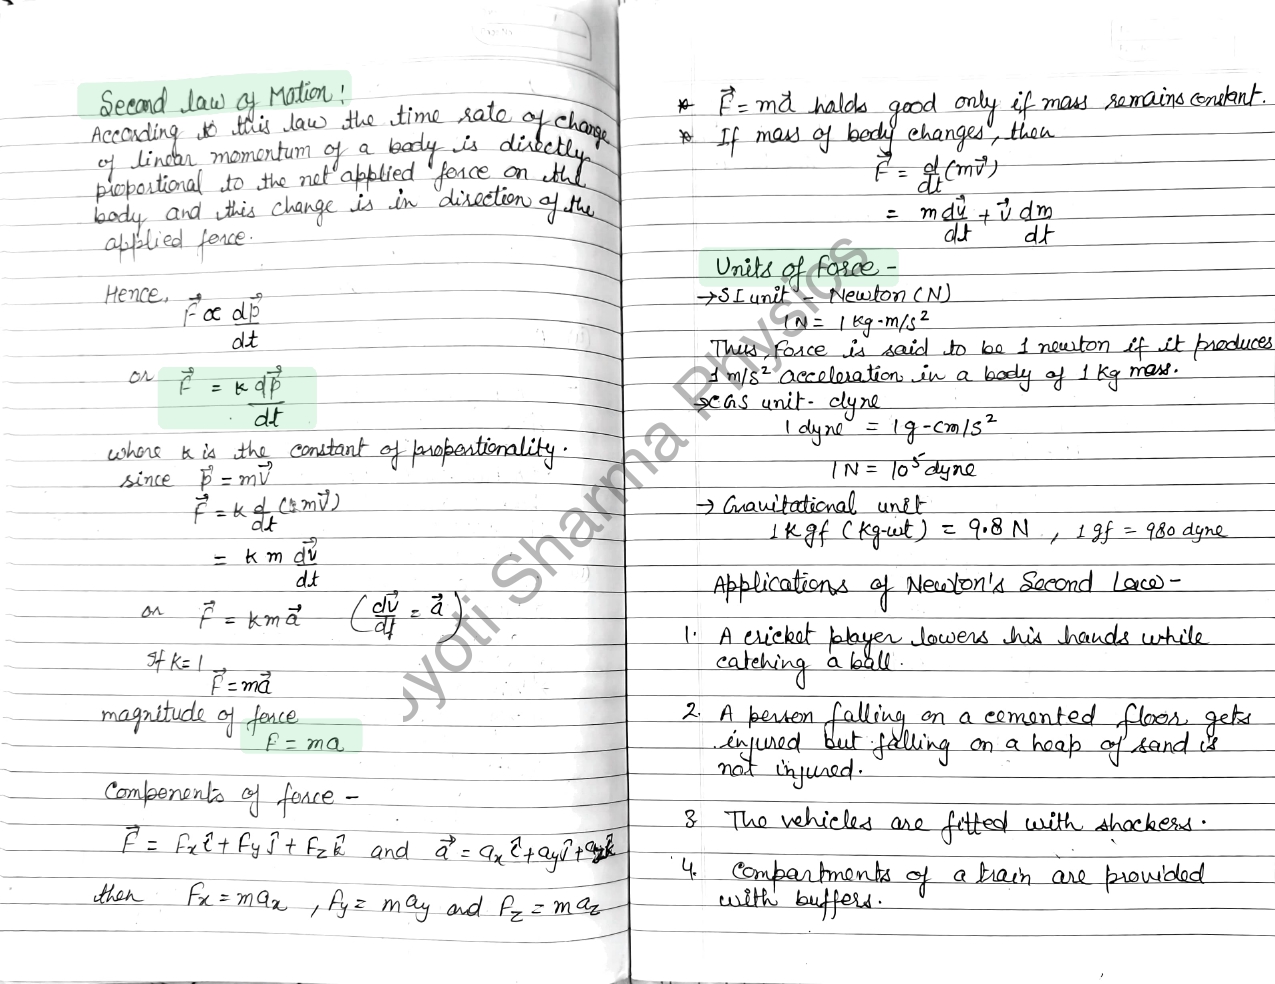 Second law of Motion!
According to this law the time rate of change
of linear momentum of a body is directly
proportional to the net applied force on the
body and this change is in direction of the
applied force.
Hence, F⃗ ∝ dp⃗/dt
or F⃗ = k dp⃗/dt
where k is the constant of proportionality.
since p⃗ = mv⃗
F⃗ = k d/dt (mv⃗)
= k m dv⃗/dt
or F⃗ = kma⃗ (dv⃗/dt = a⃗)
If k=1
F⃗ = ma⃗
magnitude of force
F = ma
Components of force –
F⃗ = Fx î + Fy ĵ + Fz k̂ and a⃗ = ax î + ay ĵ + az k̂
then Fx = max , Fy = may and Fz = maz
* F⃗ = ma⃗ holds good only if mass remains constant.
* If mass of body changes, then
F⃗ = d/dt (mv⃗)
= m dv⃗/dt + v⃗ dm/dt
Units of force –
→ SI unit – Newton (N)
1N = 1 kg-m/s²
Thus, force is said to be 1 newton if it produces
1 m/s² acceleration in a body of 1 kg mass.
→ CGS unit - dyne
1 dyne = 1g-cm/s²
1N = 10⁵ dyne
→ Gravitational unit
1 kgf (kg-wt) = 9.8 N , 1 gf = 980 dyne
Applications of Newton's Second Law –
1. A cricket player lowers his hands while
catching a ball.
2. A person falling on a cemented floor gets
injured but falling on a heap of sand is
not injured.
3 The vehicles are fitted with shockers.
4. Compartments of a train are provided
with buffers.
Jyoti Sharma Physics